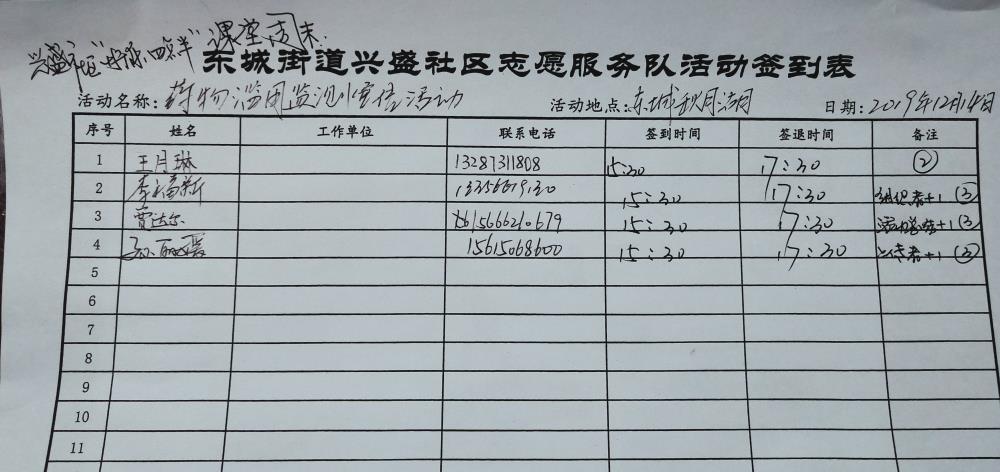 兴盛社区"好源四点半"课堂周末.
东城街道兴盛社区志愿服务队活动签到表
活动名称: 药物滥用监测宣传活动 活动地点: 东城秋月湖 日期: 2019年12月14日
序号 姓名 工作单位 联系电话 签到时间 签退时间 备注
1 王月琳 13287311808 15:30 17:30 ②
2 15:30 17:30 组织者+1 ③
3 贾达尔 15:30 17:30 +1 ③
4 15615068600 15:30 17:30 +1 ③
5
6
7
8
9
10
11